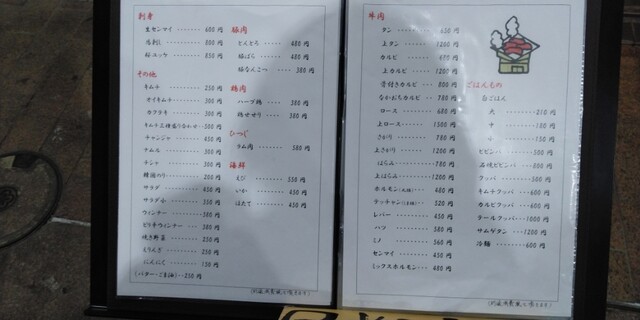 刺身
生センマイ ・・・・ 600円
馬刺し ・・・・・・ 800円
桜ユッケ ・・・・・ 850円
その他
キムチ ・・・・・・ 250円
オイキムチ ・・・・ 300円
カクテキ ・・・・・ 300円
キムチ三種盛り合わせ ・・500円
チャンジャ ・・・・ 450円
ナムル ・・・・・・ 300円
チシャ ・・・・・・ 300円
韓国のり ・・・・・ 200円
サラダ ・・・・・・ 450円
サラダ小 ・・・・・ 350円
ウィンナー ・・・・ 380円
ピリ辛ウィンナー ・・ 380円
焼き野菜 ・・・・・ 250円
えりんぎ ・・・・・ 250円
にんにく ・・・・・ 150円
(バター・ごま油)・・250円
豚肉
とんとろ ・・・・・ 480円
豚ばら ・・・・・・ 480円
豚なんこつ ・・・・ 380円
鶏肉
ハーブ鶏 ・・・・・ 380円
鶏せせり ・・・・・ 380円
ひつじ
ラム肉 ・・・・・・ 580円
海鮮
えび ・・・・・・・ 550円
いか ・・・・・・・ 450円
ほたて ・・・・・・ 450円
牛肉
タン ・・・・・・・ 650円
上タン ・・・・・・ 1200円
カルビ ・・・・・・ 680円
上カルビ ・・・・・ 1200円
骨付きカルビ ・・・ 800円
なかおちカルビ ・・ 780円
ロース ・・・・・・ 680円
上ロース ・・・・・ 1500円
さがり ・・・・・・ 780円
上さがり ・・・・・ 1200円
はらみ ・・・・・・ 780円
上はらみ ・・・・・ 1200円
ホルモン ・・・・ 480円
テッチャン ・・・ 520円
レバー ・・・・・・ 450円
ハツ ・・・・・・・ 380円
ミノ ・・・・・・・ 560円
センマイ ・・・・・ 450円
ミックスホルモン ・・・・ 480円
ごはんもの
白ごはん
大 ・・・・・・・ 210円
中 ・・・・・・・ 180円
小 ・・・・・・・ 150円
ビビンバ ・・・・・ 800円
石焼ビビンバ ・・・ 880円
クッパ ・・・・・・ 500円
キムチクッパ ・・・ 600円
カルビクッパ ・・・ 800円
テールクッパ ・・・1000円
サムゲタン ・・・・1200円
冷麺 ・・・・・・・ 600円